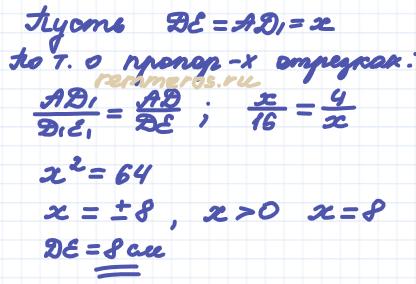 Пусть DE = AD₁ = x
По т. о пропор-х отрезках.
remmers.ru
AD₁/D₁E₁ = AD/DE ; x/16 = 4/x
x² = 64
x = ±8, x > 0 x = 8
DE = 8 см